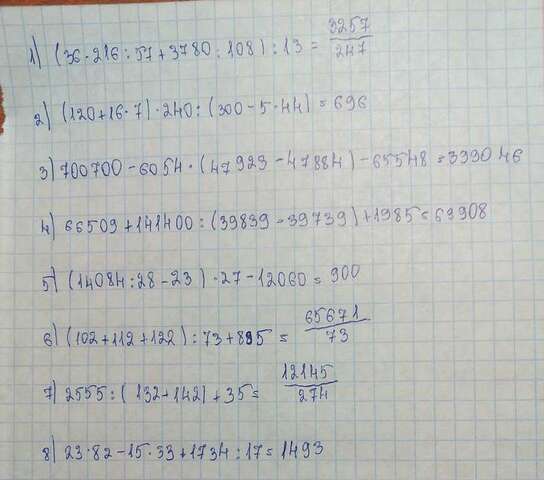 1) (36·216:57+3780:108):13=3257/247
2) (120+16·7)·240:(300-5·44)=696
3) 700700-6054·(47923-47884)-65548=399046
4) 66509+141400:(39839-39739)+1985=69908
5) (14084:28-23)·27-12060=900
6) (102+112+122):73+895=65671/73
7) 2555:(132+142)+35=12145/274
8) 23·82-15·33+1734:17=1493